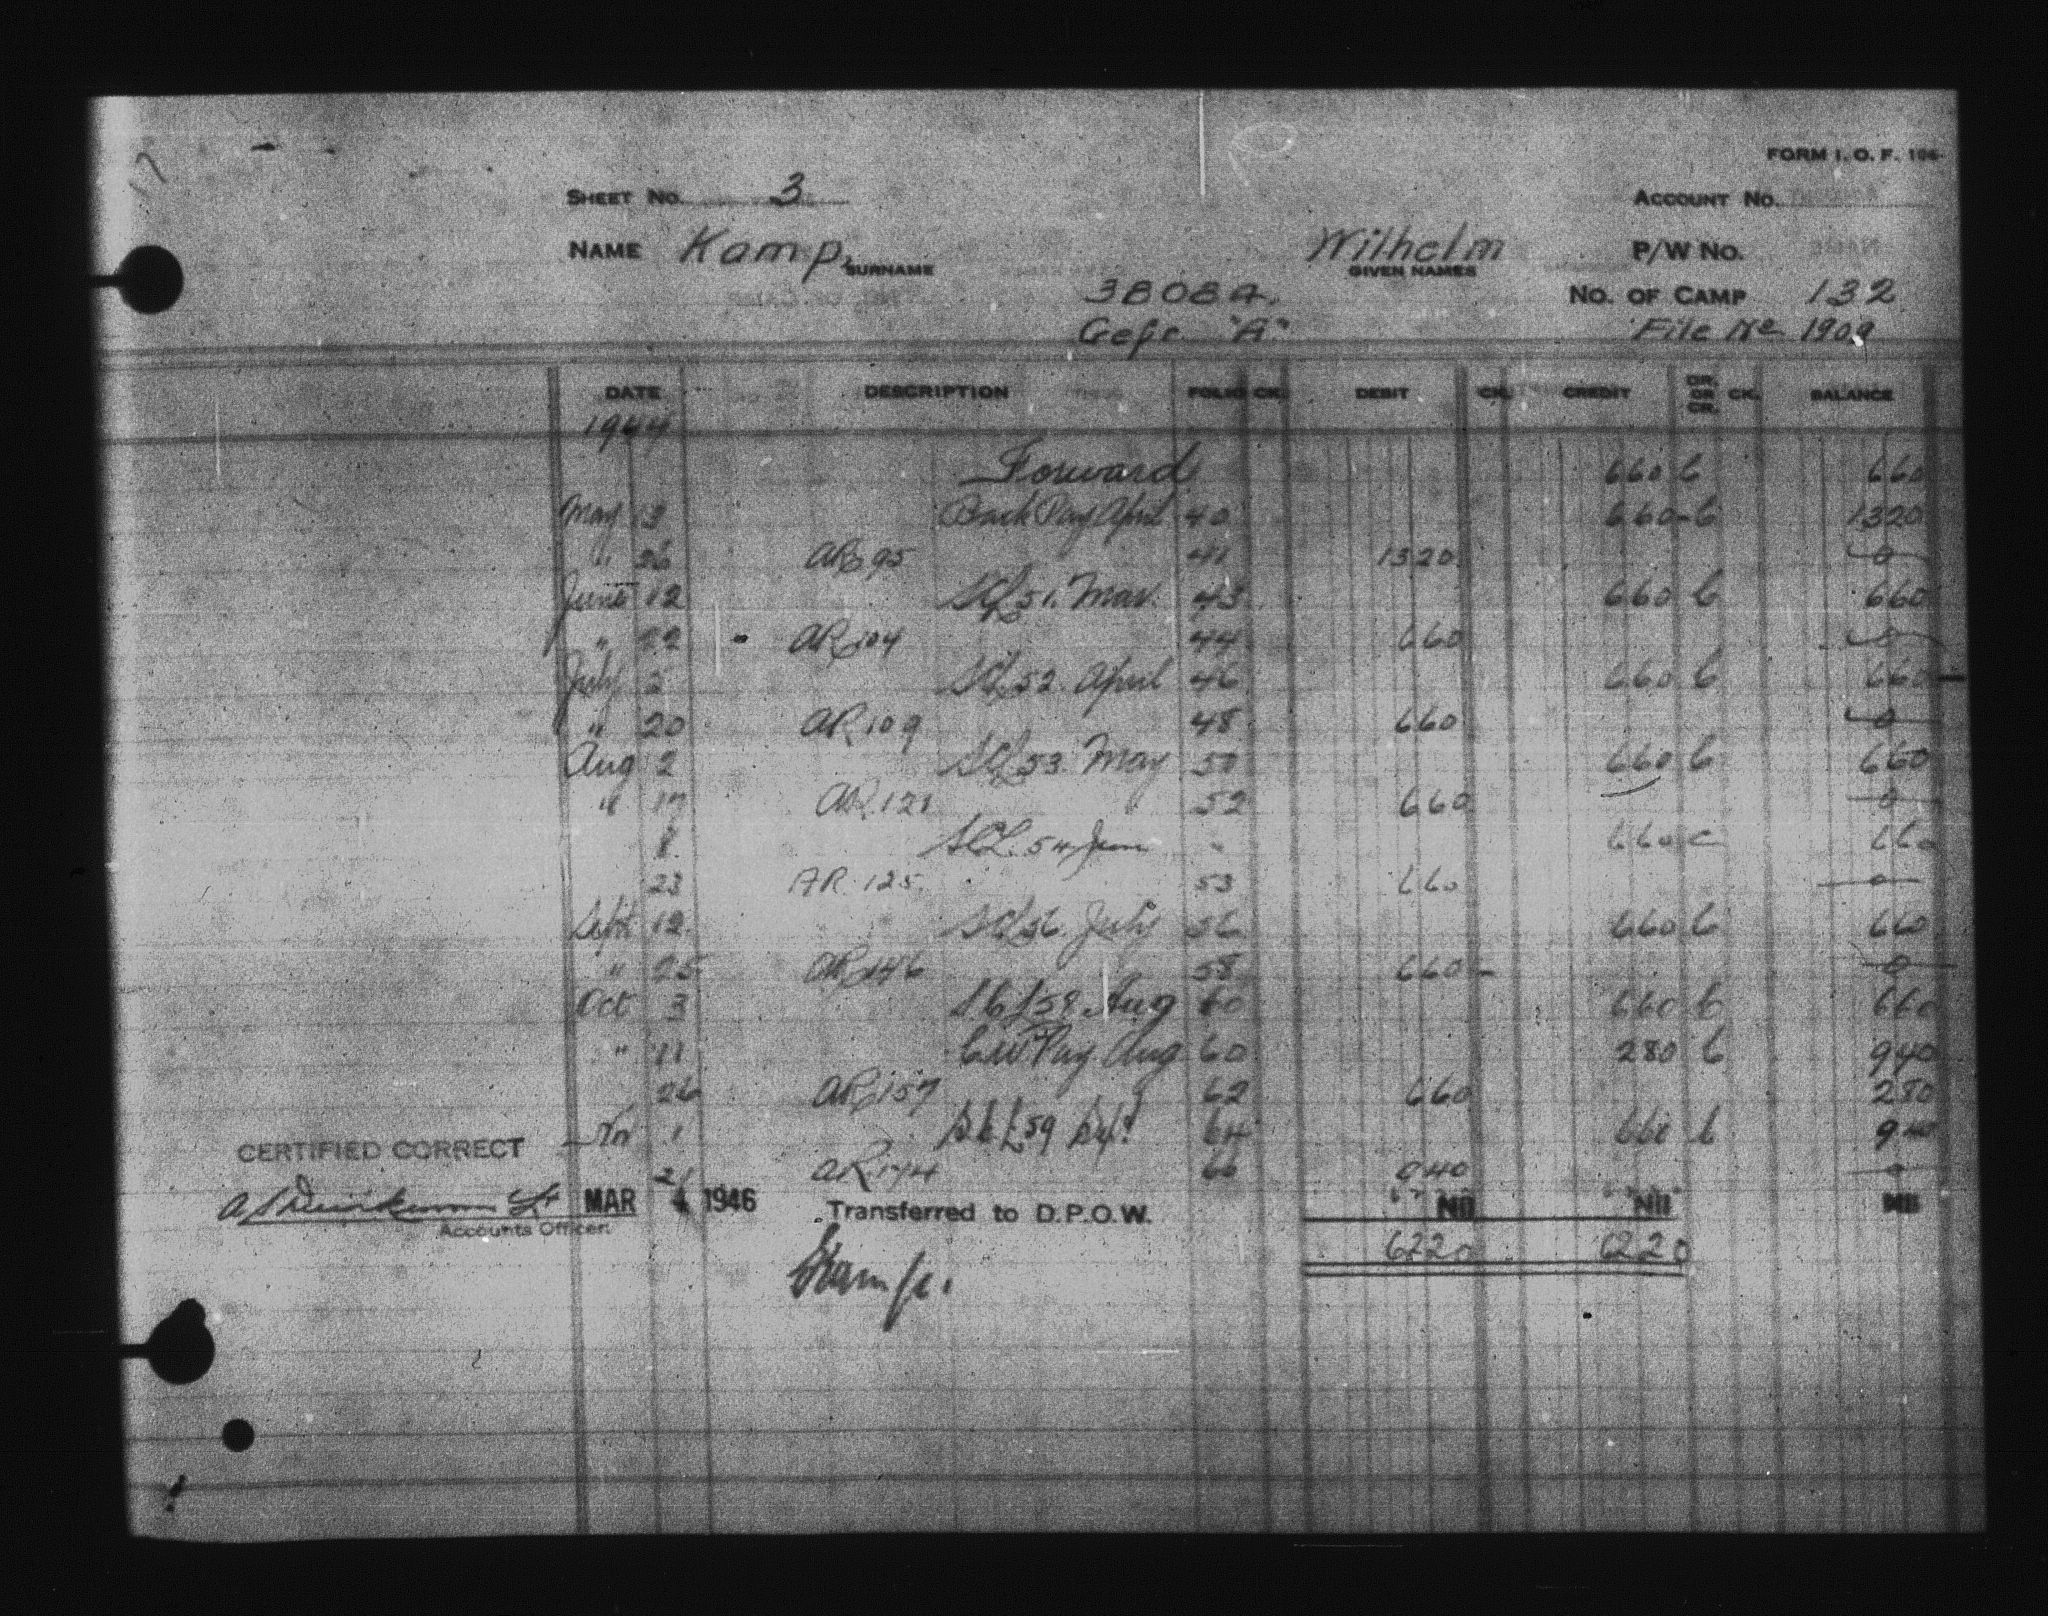 FORM I. O. F. 104
SHEET No. 3 ACCOUNT No.
NAME Kamp, Wilhelm P/W No.
SURNAME GIVEN NAMES
38084. No. OF CAMP 132
Gefr. "A" File No 1909
DATE DESCRIPTION FOLIO CK. DEBIT CK. CREDIT DR. OR CR. CK. BALANCE
1944
Forward 660 C 660
May 3 Back Pay April 40 660 C 1320
" 26 AR 95 41 1320 0
June 12 SCL 51. Mar. 43 660 C 660
" 22 AR 104 44 660 0
July 2 SCL 52. April 46 660 C 660
" 20 AR 109 48 660 0
Aug 2 SCL 53. May 50 660 C 660
" 17 AR 121 52 660 0
SCL. 54 June 660 C 660
23 AR. 125. 53 660 0
Sept 12 SCL 56. July 56 660 C 660
" 25 AR 146 58 660 0
Oct 3 SCL 58 Aug 60 660 C 660
" 11 CW Pay Aug 60 280 C 940
26 AR 157 62 660 280
Nov 1 SCL 59 Sept 64 660 C 940
AR 174 66 940 0
CERTIFIED CORRECT
MAR 4 1946 Transferred to D.P.O.W. Nil Nil Nil
Accounts Officer.
6220 6220